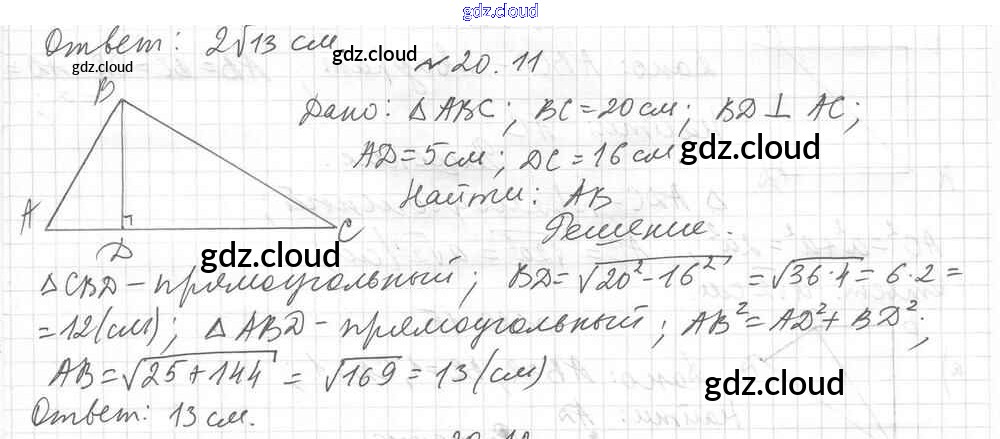 gdz.cloud
Ответ: 2√13 см
gdz.cloud
gdz.cloud
№20.11
B
Дано: △ABC; BC=20см; BD⊥AC;
AD=5см; DC=16см
gdz.cloud
Найти: AB
A
D
C
Решение:
gdz.cloud
△CBD-прямоугольный; BD=√20²-16² =√36·4=6·2=
=12(см); △ABD-прямоугольный; AB²=AD²+BD²;
AB=√25+144 = √169=13(см)
gdz.cloud
Ответ: 13см.